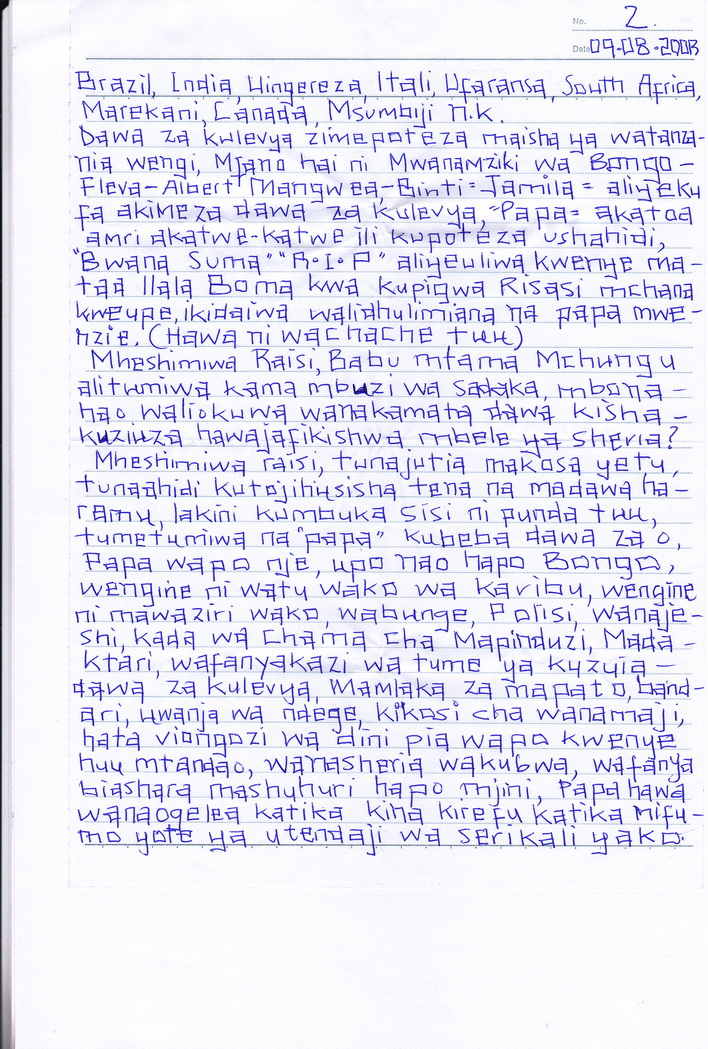 No. 2.
Date 09.08.2003
Brazil, India, Uingereza, Itali, Ufaransa, South Africa,
Marekani, Canada, Msumbiji n.k.
Dawa za kulevya zimepoteza maisha ya watanza-
nia wengi, Mfano hai ni Mwanamziki wa Bongo-
Fleva-Albert Mangwea-Binti=Jamila= aliyeku
fa akimeza dawa za kulevya, "Papa= akatoa
amri akatwe-katwe ili kupoteza ushahidi,
"Bwana Suma" "R.I.P" aliyeuliwa kwenye ma-
taa Ilala Boma kwa kupigwa Risasi mchana
kweupe, ikidaiwa walidhulimiana na papa mwe-
nzie. (Hawa ni wachache tuu)
Mheshimiwa Raisi, Babu mtama Mchungu
alitumiwa kama mbuzi wa sadaka, mbona-
hao waliokuwa wanakamata dawa kisha-
kuziuza hawajafikishwa mbele ya sheria?
Mheshimiwa raisi, tunajutia makosa yetu,
tunaahidi kutojihusisha tena na madawa ha-
ramu, lakini kumbuka sisi ni punda tuu,
tumetumiwa na "papa" kubeba dawa zao,
Papa wapo nje, upo nao hapo Bongo,
wengine ni watu wako wa karibu, wengine
ni mawaziri wako, wabunge, Polisi, wanaje-
shi, kada wa Chama cha Mapinduzi, Mada-
ktari, wafanyakazi wa tume ya kuzuia-
dawa za kulevya, Mamlaka za mapato, band-
ari, uwanja wa ndege, kikosi cha wanamaji,
hata viongozi wa dini pia wapo kwenye
huu mtandao, wanasheria wakubwa, wafanya
biashara mashuhuri hapo mjini, Papa hawa
wanaogelea katika kina kirefu katika mifu-
mo yote ya utendaji wa serikali yako.